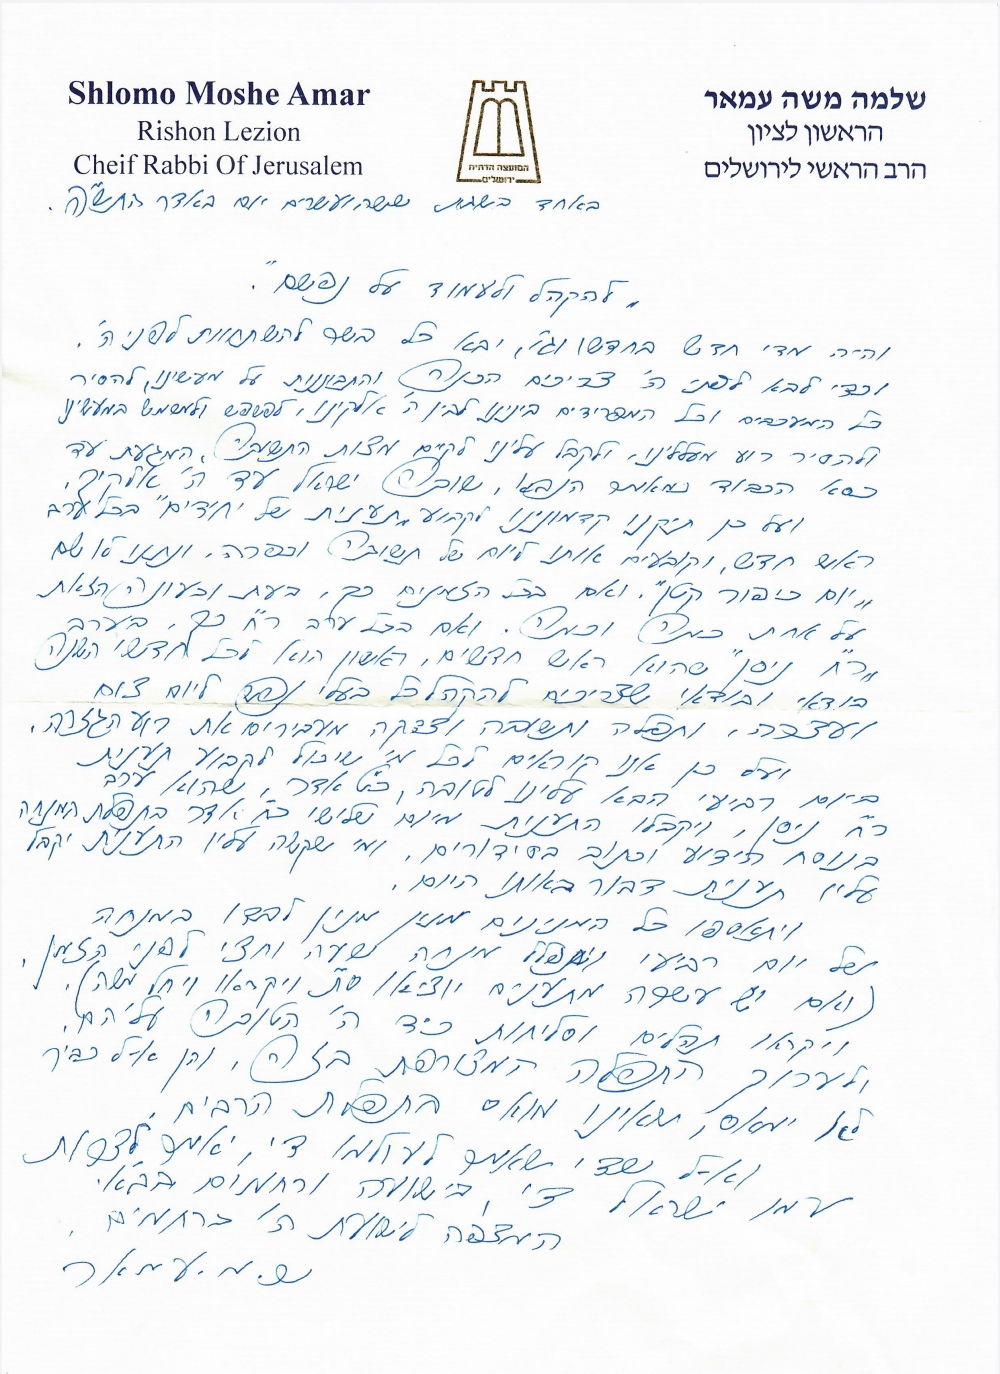 Shlomo Moshe Amar
Rishon Lezion
Cheif Rabbi Of Jerusalem
המועצה הדתית
ירושלים
שלמה משה עמאר
הראשון לציון
הרב הראשי לירושלים
באחד בשבת ששה ועשרים יום באדר התש"פ.
„להקהל ולעמוד על נפשם".
והיה מדי חדש בחדשו וגו', יבא כל בשר להשתחוות לפני ה'.
וכדי לבא לפני ה' צריכים הכנה והתבוננות על מעשינו, להסיר
כל המעכבים וכל המפרידים בינינו לבין ה' אלקינו, לפשפש ולמשמש במעשינו
ולהסיר רוע מעללינו, ולקבל עלינו לקיים מצות התשובה, המגעת עד
כסא הכבוד כמאמר הנביא, שובה ישראל עד ה' אלקיך.
ועל כן תיקנו קדמונינו לקבוע „תענית של יחידים" בכל ערב
ראש חדש, וקובעים אותו ליום של תשובה וכפרה. ונתנו לו שם
„יום כיפור קטן". ואם בכל הזמנים כך, בעת ובעונה הזאת
על אחת כמה וכמה. ואם בכל ערב ר"ח כך, בערב
„ר"ח ניסן" שהוא ראש חדשים, ראשון הוא לכל חדשי השנה
בודאי ובודאי שצריכים להקהל כל בעלי נפש ליום צום
ועצרה, ותפלה ותשובה וצדקה מעבירים את רוע הגזרה.
ועל כן אנו קוראים לכל מי שיכול לקבוע תענית
ביום רביעי הבא עלינו לטובה, כ"ט אדר, שהוא ערב
ר"ח ניסן, ויקבלו התענית מיום שלישי כ"ח אדר בתפלת המנחה
בנוסח הידוע וכתוב בסידורים. ומי שקשה עליו התענית יקבל
עליו תענית דבור באותו היום.
ויתאספו כל המנינים מנין מנין לבדו במנחה
של יום רביעי ויתפלל מנחה שעה וחצי לפני הזמן,
(ואם יש עשרה מתענים יוציאו ס"ת ויקראו ויחל משה).
ויקראו תהלים וסליחות כיד ה' הטובה עליהם.
ולערוך התפלה המצורפת בזה, והן א-ל כביר
לא ימאס, שאינו מואס בתפלת הרבים.
וא-ל שדי שאמר לעולמו די, יאמר לצרות
עמו ישראל די, בישועה ורחמים בב"א.
המצפה לישועת ה' ברחמים,
ש. מ. עמאר